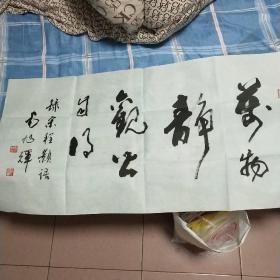 萬物
靜
觀皆
自得
錄宋程顥語